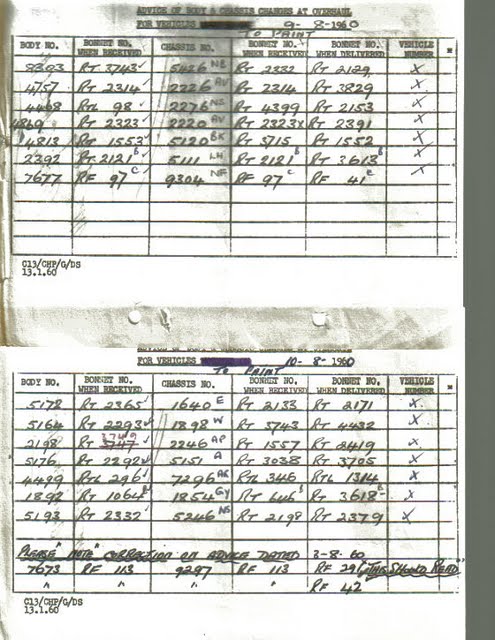 ADVICE OF BODY & CHASSIS CHANGES AT OVERHAUL
FOR VEHICLES 9-8-1960
TO PAINT
BODY NO. BONNET NO. WHEN RECEIVED CHASSIS NO. BONNET NO. WHEN RECEIVED BONNET NO. WHEN DELIVERED VEHICLE NUMBER
8303 RT 3743 ✓ 5426 NB RT 2332 RT 2129 X
4757 RT 2314 ✓ 2226 AV RT 2314 RT 3829 X
4468 RTL 98 ✓ 2276 NS RT 4399 RT 2153 X
4849 RT 2323 ✓ 2220 AV RT 2323 X RT 2391 X
4813 RT 1553 ✓ 5120 BK RT 3715 RT 1552 X
2392 RT 2121 B ✓ 5111 LH RT 2121 B RT 3613 B X
7677 RF 97 C ✓ 9304 NF RF 97 C RF 41 C X
C13/CHP/G/DS
13.1.60
FOR VEHICLES 10-8-1960
TO PAINT
BODY NO. BONNET NO. WHEN RECEIVED CHASSIS NO. BONNET NO. WHEN RECEIVED BONNET NO. WHEN DELIVERED VEHICLE NUMBER
5178 RT 2365 ✓ 1640 E RT 2133 RT 2171 X
5164 RT 2293 ✓ 1898 W RT 3743 RT 4432 X
2198 RT 3749 ✓ 2246 AP RT 1557 RT 2419 X
5176 RT 2292 ✓ 5151 A RT 3038 RT 3705 X
4499 RTL 296 ✓ 7296 RTL 346 RTL 1314 X
1892 RT 1064 B 1854 GY RT 646 B RT 3618 B X
5193 RT 2332 ✓ 5246 NS RT 2198 RT 2379 X
PLEASE "NOTE" CORRECTION ON ADVICE DATED 3-8-60
7673 RF 113 9297 RF 113 RF 29 "THIS SHOULD READ"
" " " " RF 42
C13/CHP/G/DS
13.1.60